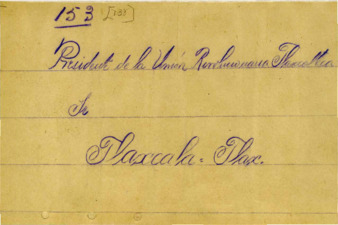 153 [153]
President de la Unión Revolucionaria Tlaxcalteca
Sr
Tlaxcala. Tlax.